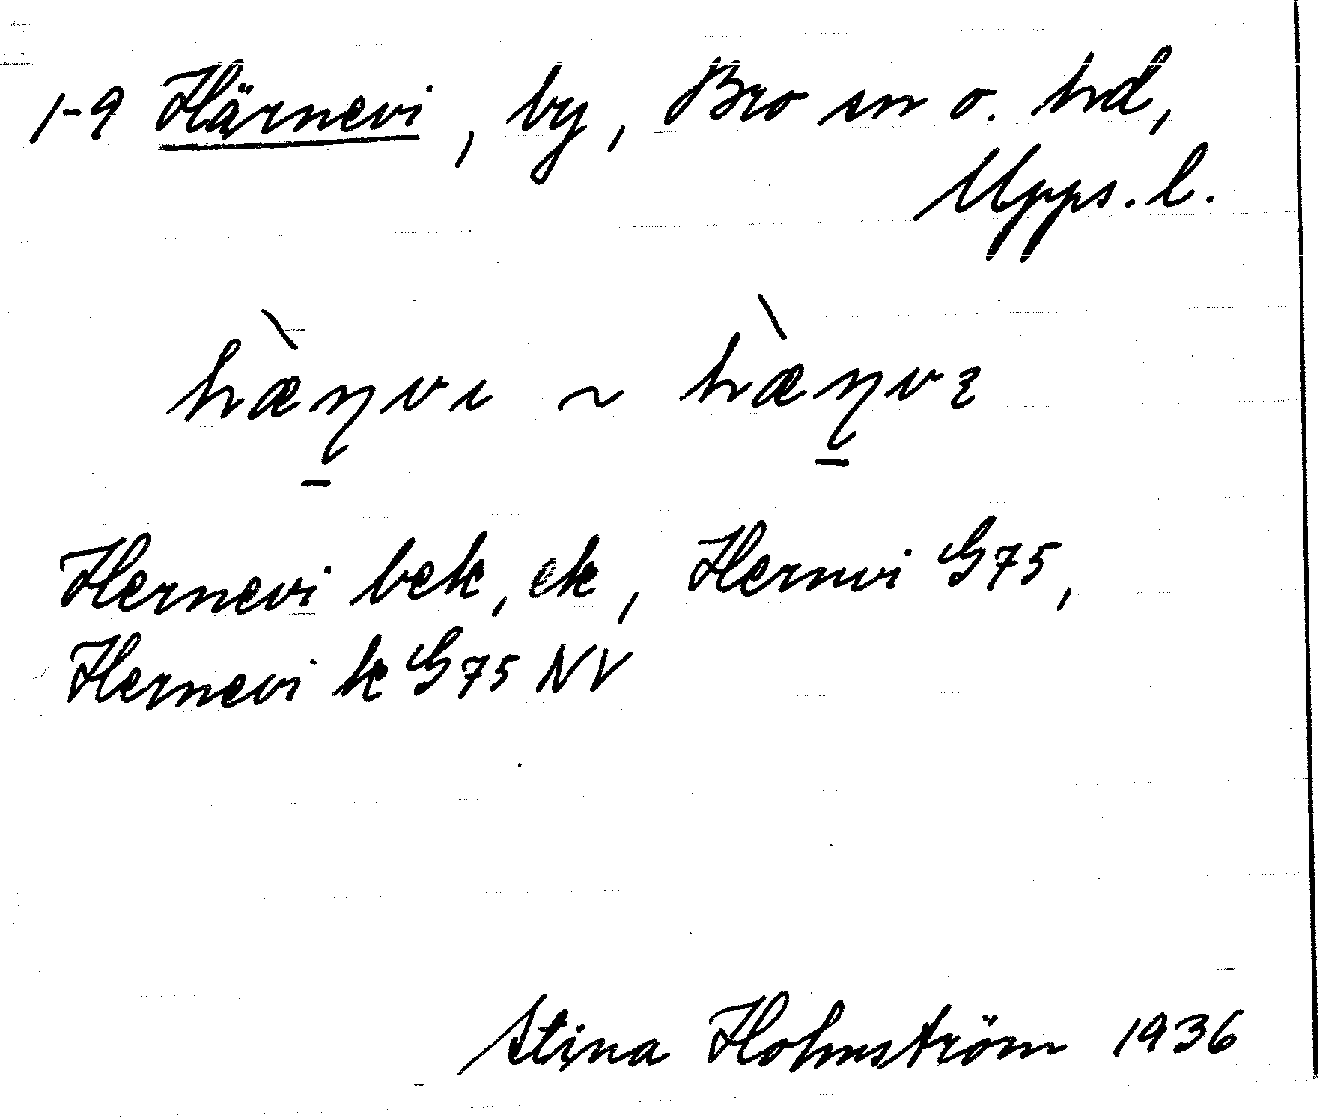 1-9 Härnevi, by, Bro sn o. hd,
Upps. l.
hæ̀ɳvı ~ hæ̀ɳvꝫ
Hernevi bek, ek, Hernvi G75,
Hernevi k G75 NV
Stina Holmström 1936